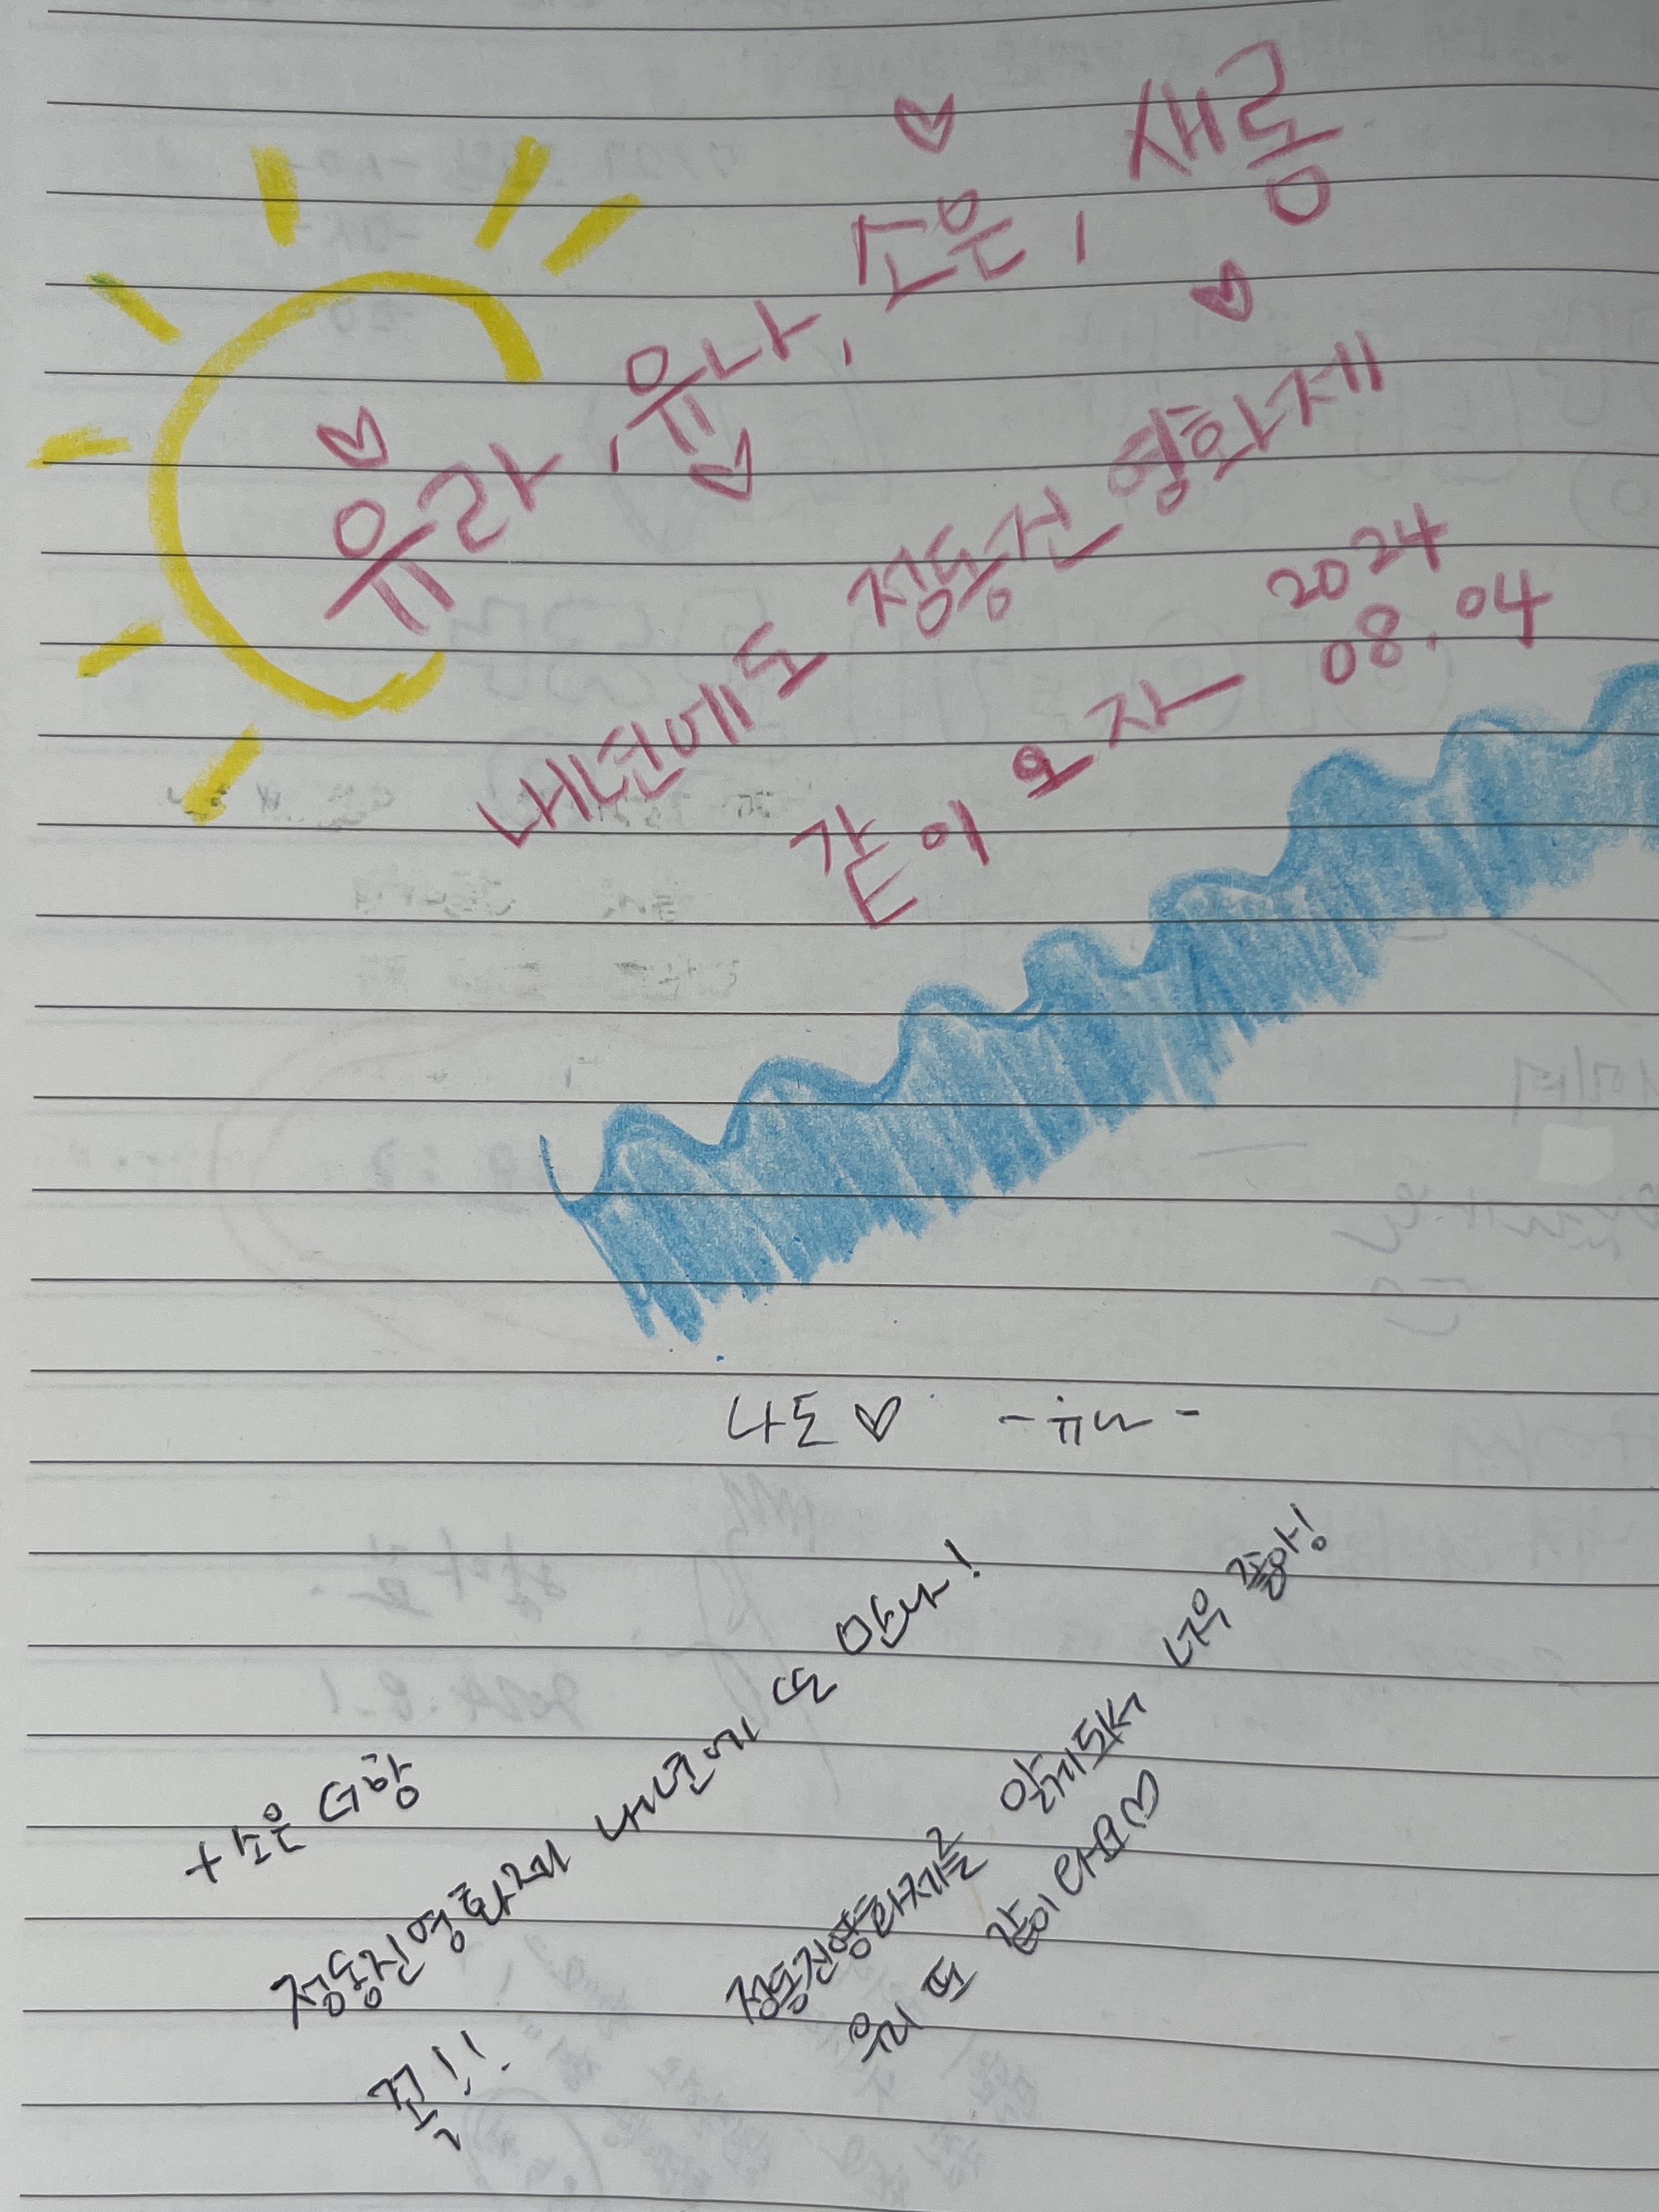 유라, 유나, 소은, 새롬
내년에도 정동진 영화제
같이 오자
2024
08.04
나도♡ -유나-
+ 소은 너항
정동진영화제 내년에 또 만나!
꼭!!
정동진영화제를 알게되서 너무 좋아!
우리 또 같이 와요♡